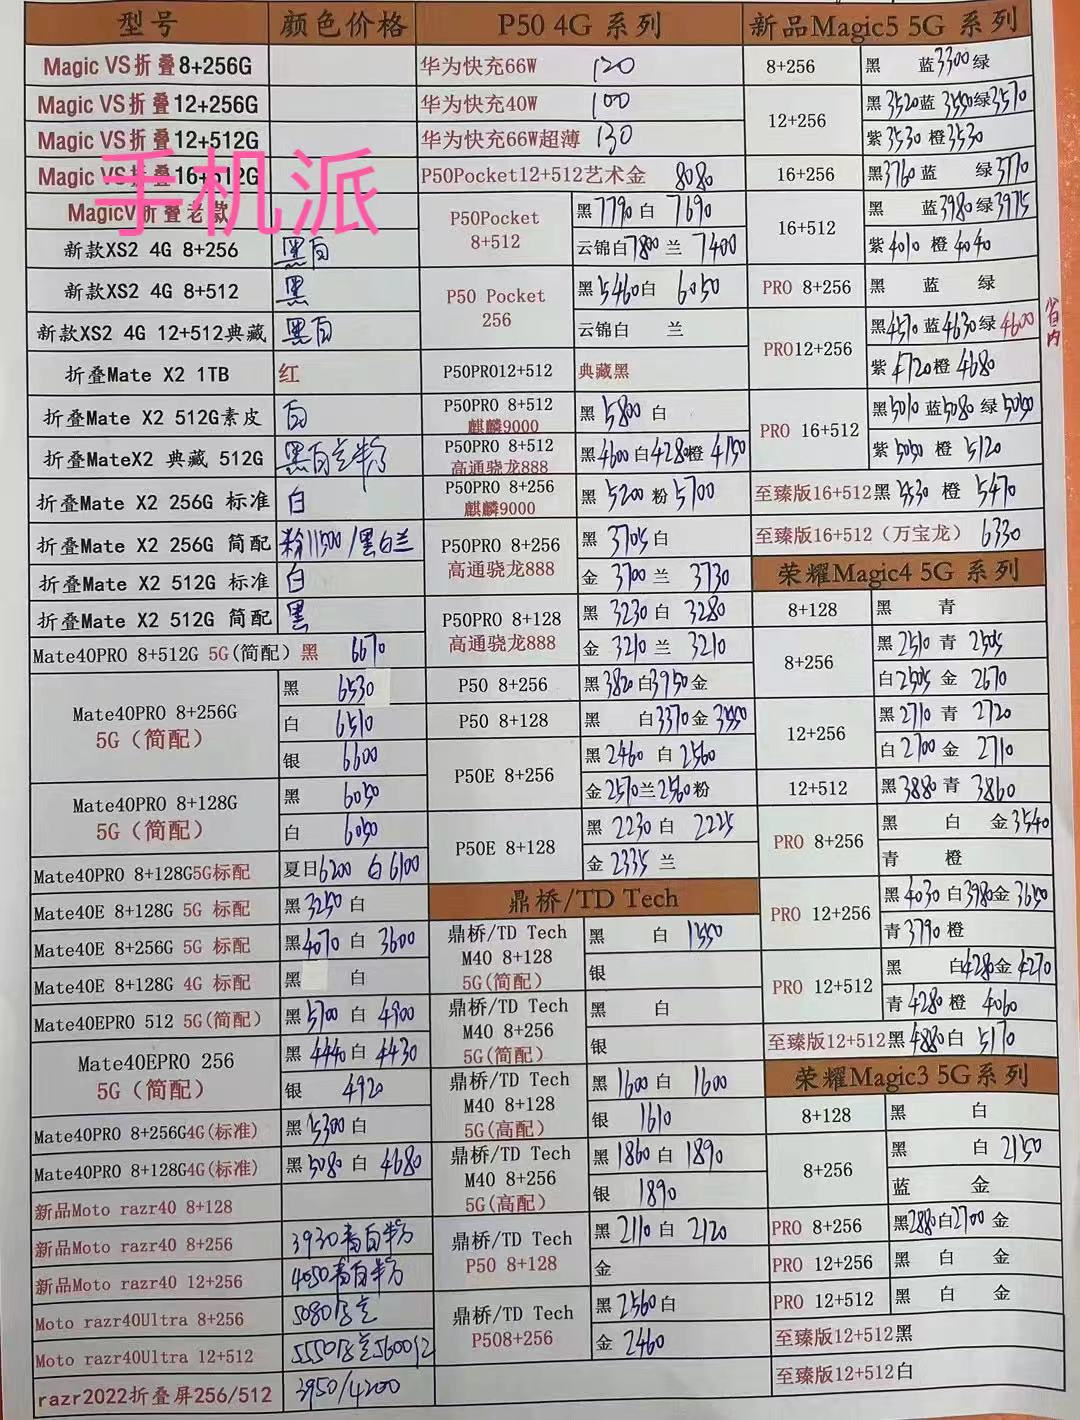 型号 颜色价格 P50 4G 系列 新品Magic5 5G 系列
手机派
Magic VS折叠8+256G
Magic VS折叠12+256G
Magic VS折叠12+512G
Magic VS折叠16+512G
MagicV折叠老款
新款XS2 4G 8+256 黑白
新款XS2 4G 8+512 黑
新款XS2 4G 12+512典藏 黑白
折叠Mate X2 1TB 红
折叠Mate X2 512G素皮 白
折叠MateX2 典藏 512G
折叠Mate X2 256G 标准 白
折叠Mate X2 256G 简配 粉11500/黑白兰
折叠Mate X2 512G 标准 白
折叠Mate X2 512G 简配 黑
Mate40PRO 8+512G 5G(简配) 黑 6670
Mate40PRO 8+256G
5G（简配）
黑 6530
白 6510
银 6600
Mate40PRO 8+128G
5G（简配）
黑 6050
白 6050
Mate40PRO 8+128G5G标配 夏日6200 白6100
Mate40E 8+128G 5G 标配 黑3250 白
Mate40E 8+256G 5G 标配 黑4070 白 3600
Mate40E 8+128G 4G 标配 黑 白
Mate40EPRO 512 5G(简配) 黑5700 白 4900
Mate40EPRO 256
5G（简配）
黑 4440 白 4430
银 4920
Mate40PRO 8+256G4G(标准) 黑5300 白
Mate40PRO 8+128G4G(标准) 黑5080 白 4680
新品Moto razr40 8+128
新品Moto razr40 8+256 3930青白粉
新品Moto razr40 12+256 4050青白粉
Moto razr40Ultra 8+256 5080
Moto razr40Ultra 12+512 5550 5600红
razr2022折叠屏256/512 3950/4200
华为快充66W 120
华为快充40W 100
华为快充66W超薄 130
P50Pocket12+512艺术金 8080
P50Pocket
8+512
黑7790 白 7690
云锦白7800 兰 7400
P50 Pocket
256
黑5460白 6050
云锦白 兰
P50PRO12+512 典藏黑
P50PRO 8+512
麒麟9000
黑 5800 白
P50PRO 8+512
高通骁龙888
黑4600白4280橙 4150
P50PRO 8+256
麒麟9000
黑 5200 粉 5700
P50PRO 8+256
高通骁龙888
黑 3705白
金 3700 兰 3730
P50PRO 8+128
高通骁龙888
黑 3230 白 3280
金 3210 兰 3210
P50 8+256 黑3820白3950金
P50 8+128 黑 白3370金 3550
P50E 8+256
黑2460 白 2560
金2570兰2560粉
P50E 8+128
黑 2230 白 2225
金 2335 兰
鼎桥/TD Tech
鼎桥/TD Tech
M40 8+128
5G(简配)
黑 白 1550
银
鼎桥/TD Tech
M40 8+256
5G(简配)
黑 白
银
鼎桥/TD Tech
M40 8+128
5G(高配)
黑 1600 白 1600
银 1610
鼎桥/TD Tech
M40 8+256
5G(高配)
黑 1860 白 1890
银 1890
鼎桥/TD Tech
P50 8+128
黑 2110 白 2120
金
鼎桥/TD Tech
P508+256
黑 2560白
金 2460
8+256 黑 蓝3300绿
12+256
黑3520蓝 3550绿3570
紫3530 橙3530
16+256 黑3760蓝 绿3770
16+512
黑 蓝3980绿3975
紫4010 橙4040
PRO 8+256 黑 蓝 绿
PRO12+256
黑4570 蓝4630绿 4600
省内
紫4720橙 4680
PRO 16+512
黑5010 蓝5080 绿 5050
紫 5050 橙 5120
至臻版16+512黑 5530 橙 5470
至臻版16+512（万宝龙） 6330
荣耀Magic4 5G 系列
8+128 黑 青
8+256
黑 2510 青 2505
白2505 金 2670
12+256
黑2710 青 2720
白2700 金 2710
12+512 黑3880青 3860
PRO 8+256
黑 白 金3540
青 橙
PRO 12+256
黑4030 白3980金3650
青3790橙
PRO 12+512
黑 白4280金 4270
青4280橙 4060
至臻版12+512黑4880白 5170
荣耀Magic3 5G系列
8+128 黑 白
8+256
黑 白 2150
蓝 金
PRO 8+256 黑2880白2700 金
PRO 12+256 黑 白 金
PRO 12+512 黑 白 金
至臻版12+512黑
至臻版12+512白